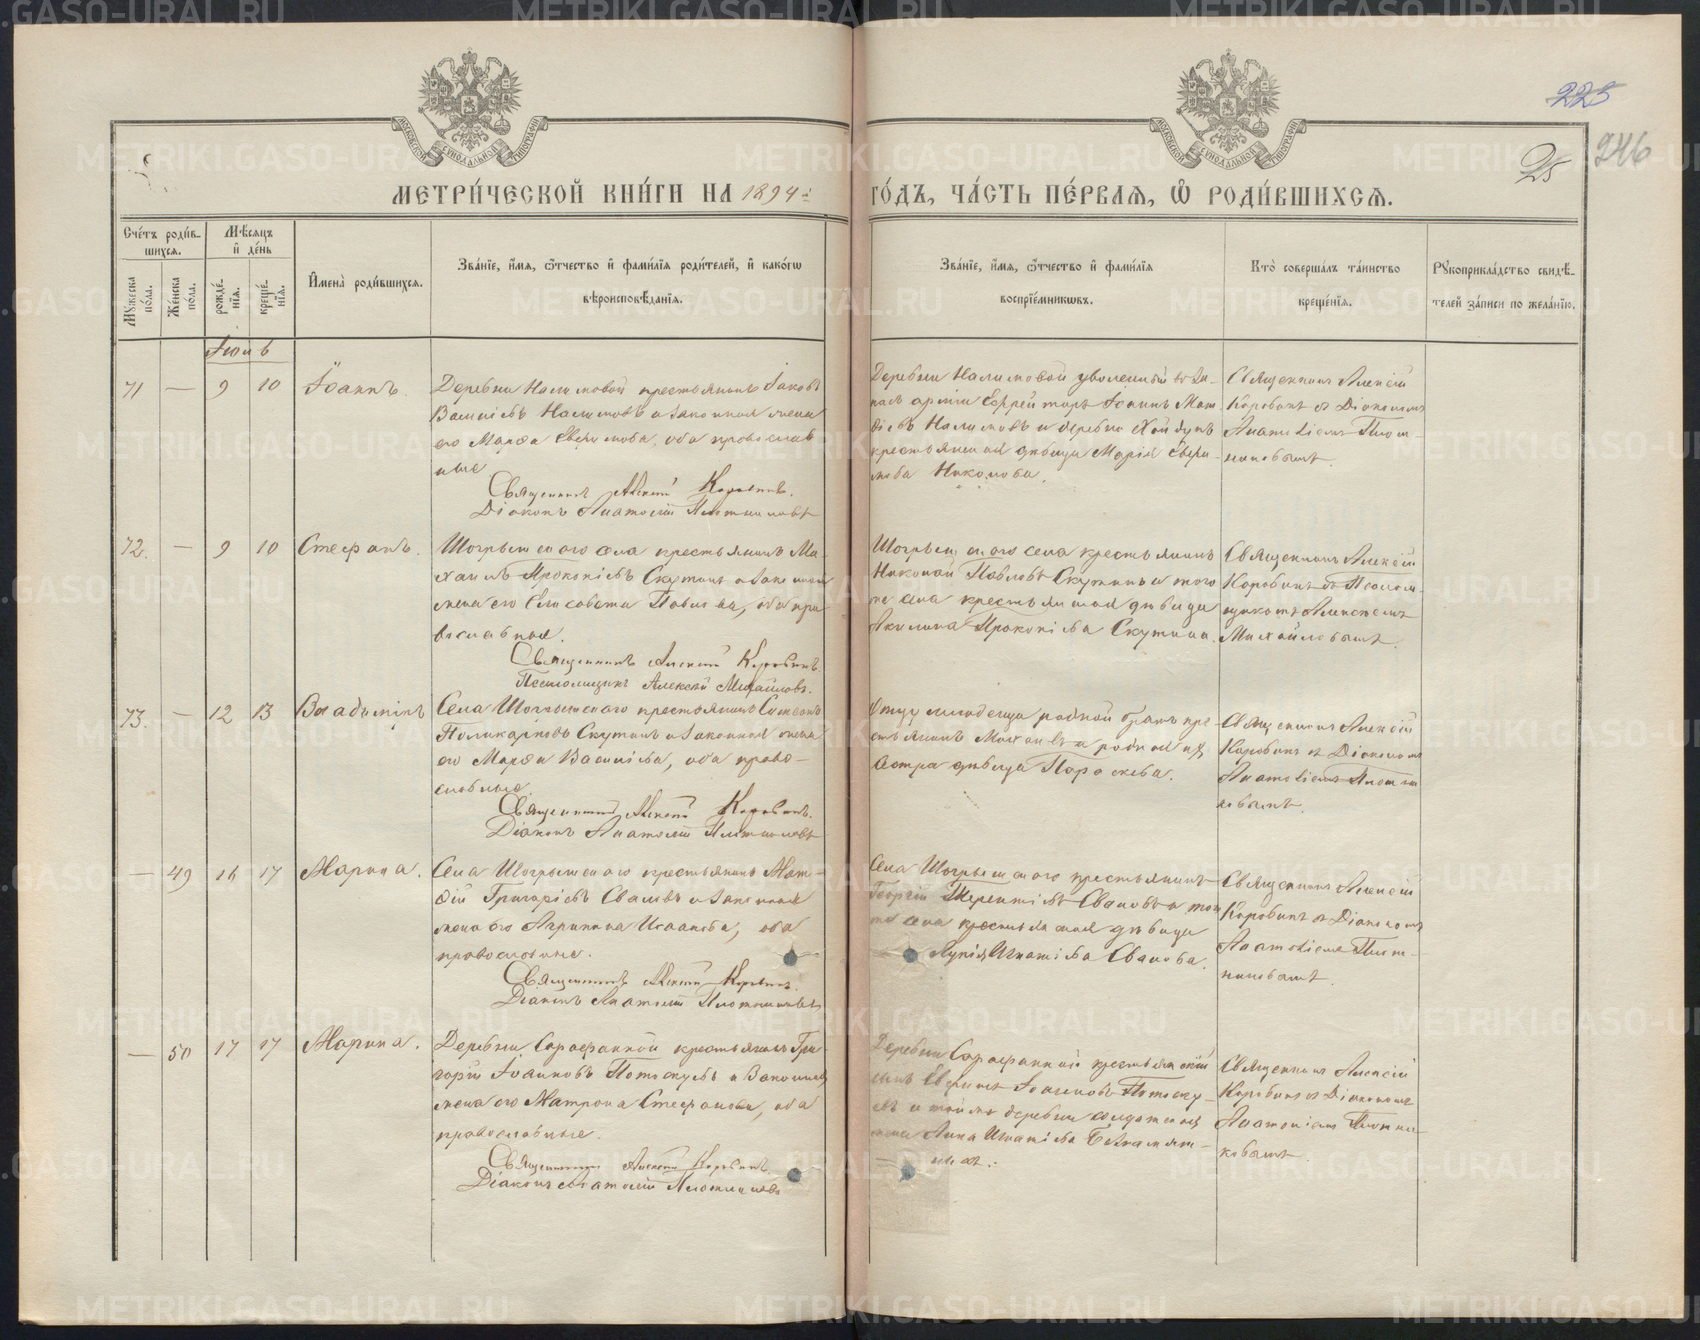 225
246
25
МЕТРИ́ЧЕСКОЙ КНИ́ГИ НА 1894 ГО́ДЪ, ЧА́СТЬ ПЕ́РВАЯ, Ѽ РОДИ́ВШИХСЯ.
Сче́тъ роди́в-
шихся.
Мѣ́сяцъ
и҆ де́нь
Му́жеска по́ла.
Же́нска по́ла.
рожде́нїя.
креще́нїя.
И҆мена̀ роди́вшихся.
Зва́нїе, и҆́мя, ѻ҆́тчество и҆ фами́лїя роди́телей, и҆ како́гѡ
вѣроисповѣ́данїя.
Зва́нїе, и҆́мя, ѻ҆́тчество и҆ фами́лїя
воспрїе́мникѡвъ.
Кто̀ соверша́лъ та́инство
креще́нїя.
Рꙋкоприкла́дство свидѣ́-
телей за́писи по жела́нїю.
Іюль
71 — 9 10 Іоаннъ.
Деревни Налимовой крестьянинъ Іаковъ
Василіевъ Налимовъ и законная жена
его Марѳа, оба православ
ные
Священникъ Алексій Коровинъ.
Діаконъ Анатолій Плотниковъ
Деревни Налимовой уволенный въ за-
пасъ арміи Іоаннъ Мат
ѳіевъ Налимовъ и деревни
крестьянская дѣвица Марія
Никонова.
Священникъ Алексій
Коровинъ съ Діакономъ
Анатоліемъ Плот-
никовымъ.
72. — 9 10 Стефанъ.
Шогрышскаго села крестьянинъ Ми-
хаилъ Прокопіевъ Скутинъ и законная
жена его Елисавета Павлова, оба пра
вославные.
Священникъ Алексій Коровинъ.
Псаломщикъ Алексѣй Михайловъ.
Шогрышскаго села крестьянинъ
Николай Павловъ Скутинъ и того
же села крестьянская дѣвица
Акилина Прокопіева Скутина.
Священникъ Алексій
Коровинъ съ Псалом-
щикомъ Алексѣемъ
Михайловымъ.
73. — 12 13 Владиміръ
Села Шогрышскаго крестьянинъ Симеонъ
Поликарповъ Скутинъ и законная жена
его Марѳа Василіева, оба право-
славные.
Священникъ Алексій Коровинъ.
Діаконъ Анатолій Плотниковъ
Отцу младенца родной братъ кре-
стьянинъ Михаилъ и родная их
сестра дѣвица Параскева.
Священникъ Алексій
Коровинъ съ Діакономъ
Анатоліемъ Плотни
ковымъ.
— 49 16 17 Марина.
Села Шогрышскаго крестьянинъ Мат-
ѳій Григоріевъ и законная
жена его Агрипина Исаакова, оба
православные.
Священникъ Алексій Коровинъ.
Діаконъ Анатолій Плотниковъ
Села Шогрышскаго крестьянинъ
Георгій Терентіевъ и того
же села крестьянская дѣвица
Игнатіева
Священникъ Алексій
Коровинъ съ Діакономъ
Анатоліемъ Плот-
никовымъ.
— 50 17 17 Марина.
Деревни Сарафанной крестьянинъ Гри-
горій Іоанновъ Потоскуевъ и законная
жена его Матрона Стефанова, оба
православные.
Священникъ Алексій Коровинъ.
Діаконъ Анатолій Плотниковъ
Деревни Сарафанной крестьянскій
сынъ Іоанновъ Потоску-
евъ и той же деревни солдатская
жена Анна Игнатіева
Священникъ Алексій
Коровинъ съ Діакономъ
Анатоліемъ Плотни-
ковымъ.
METRIKI.GASO-URAL.RU